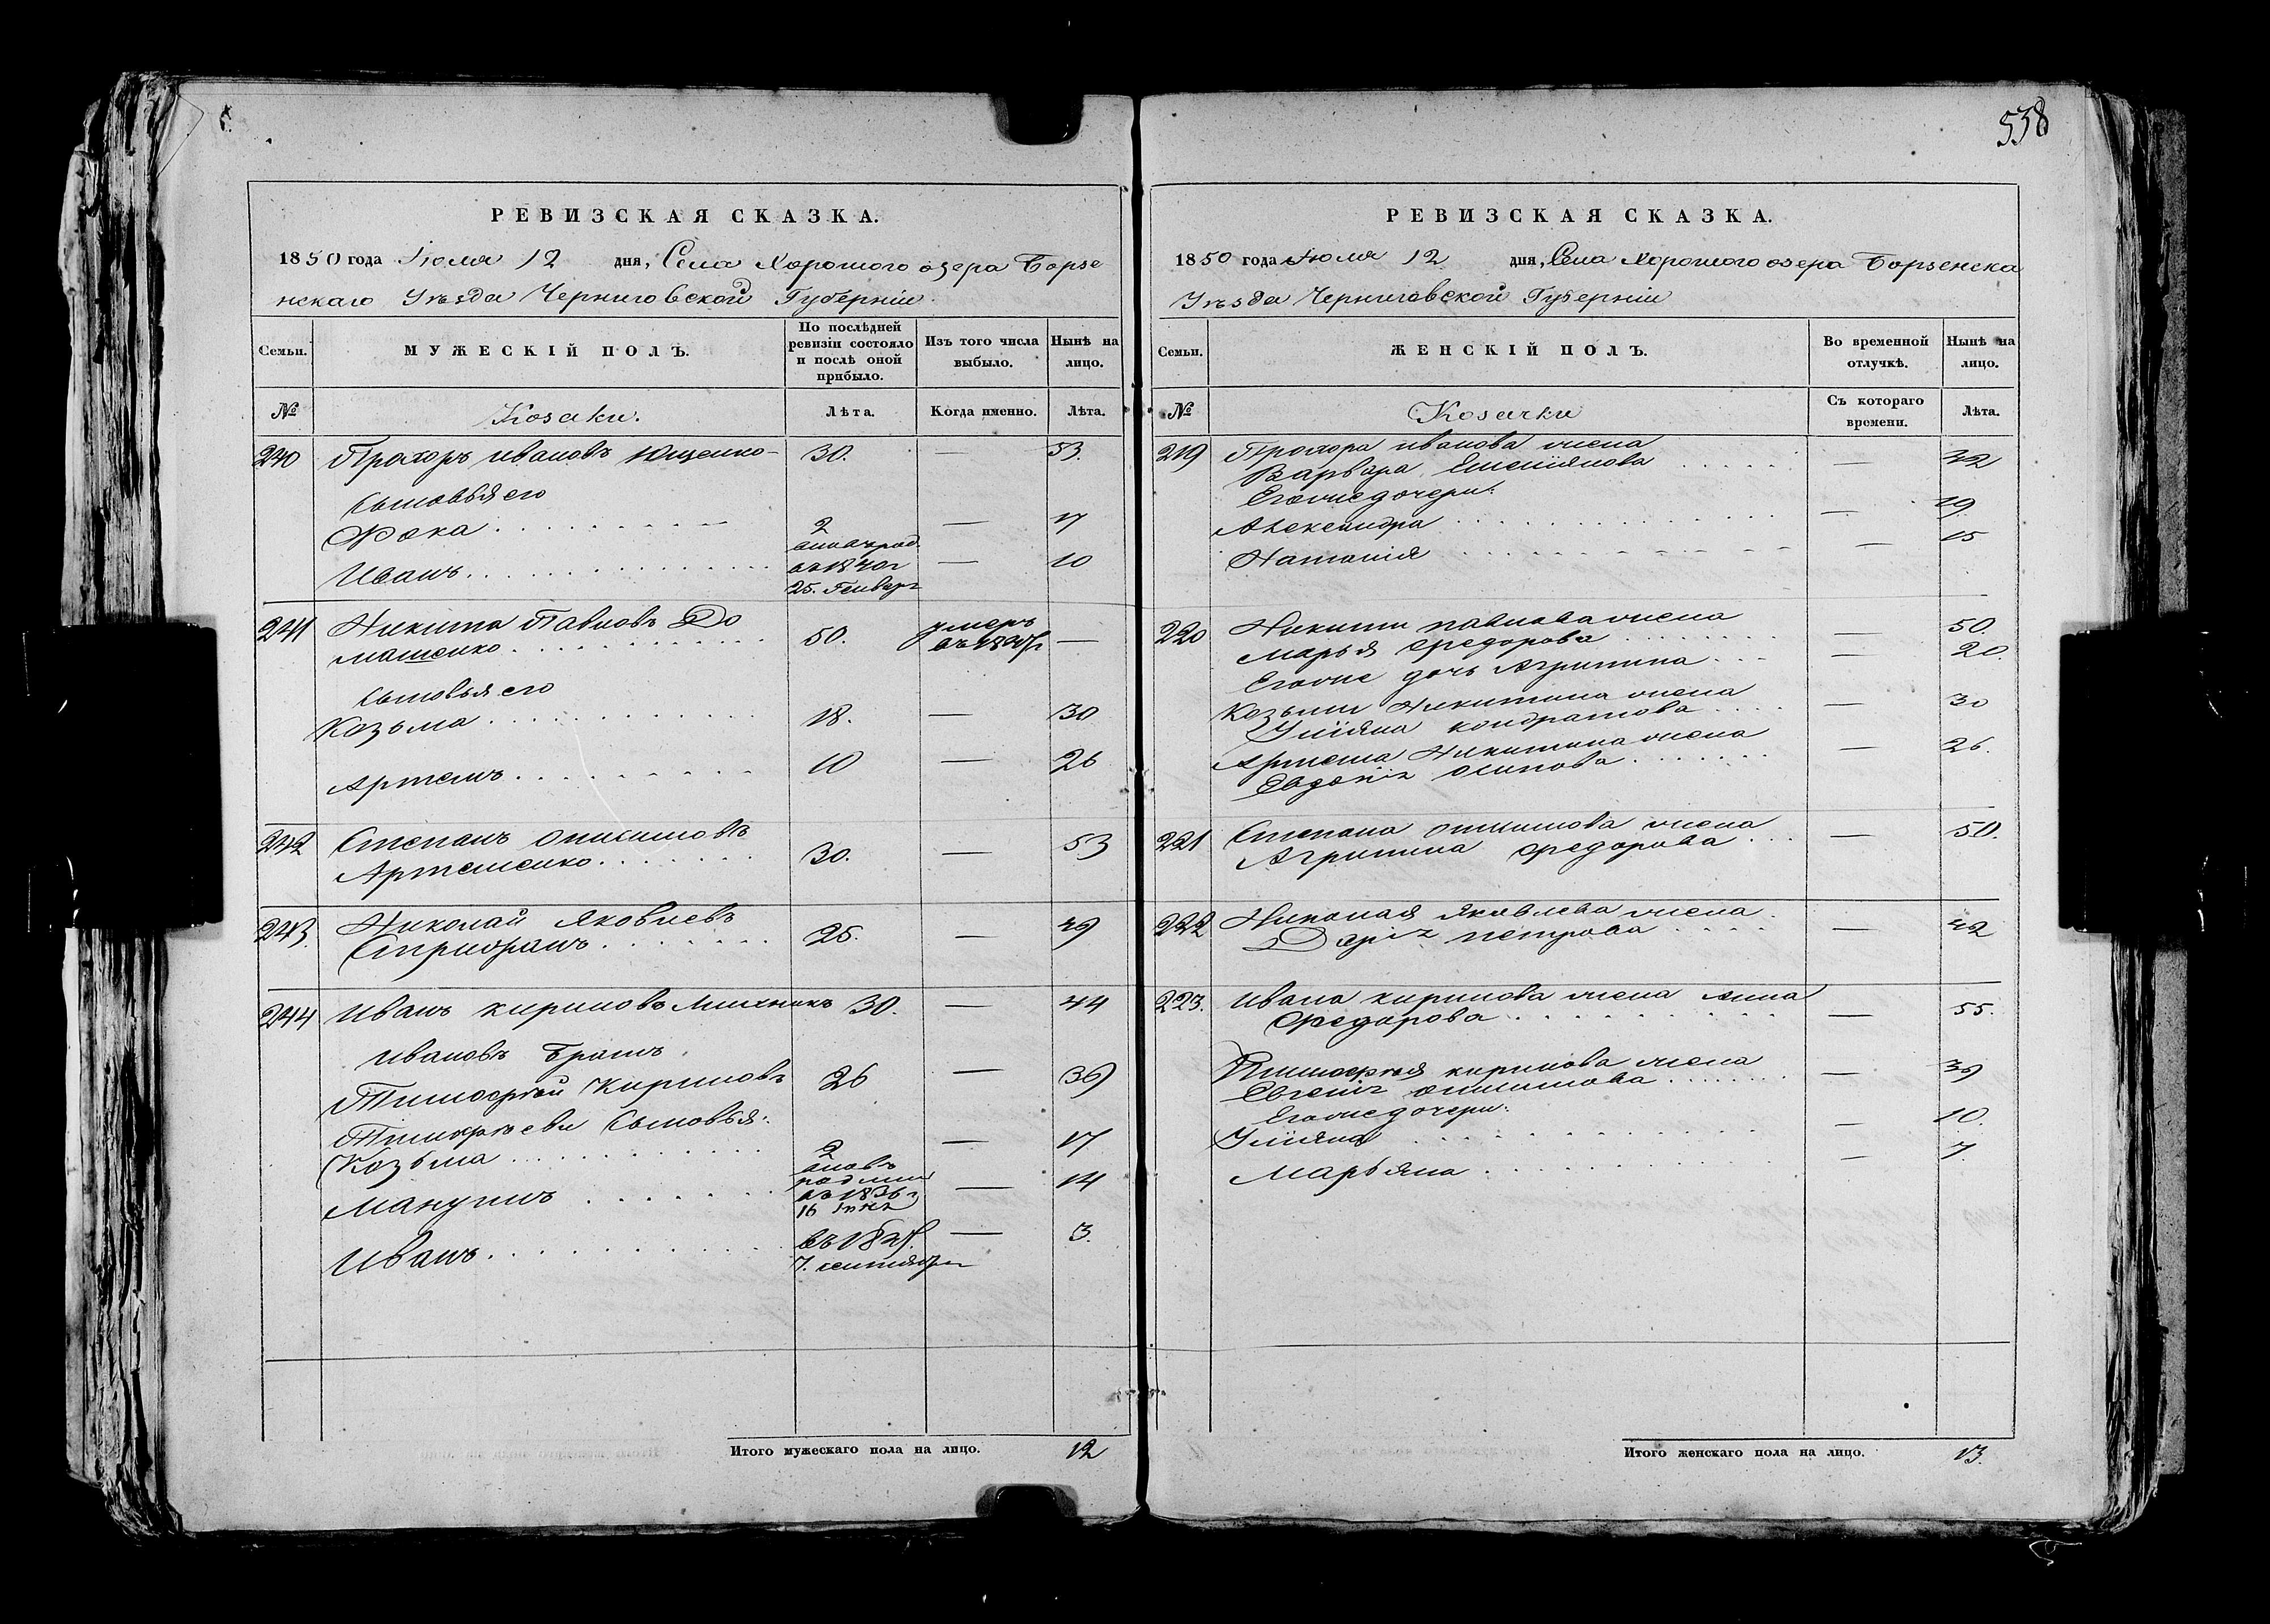 538
РЕВИЗСКАЯ СКАЗКА.
1850 года Іюля 12 дня, Села Хорошого озера Борзе
нскаго Уѣзда Черниговской Губерніи.
Семьи.
МУЖЕСКІЙ ПОЛЪ.
По послѣдней ревизіи состояло и послѣ оной прибыло.
Изъ того числа выбыло.
Нынѣ на лицо.
№
Козаки.
Лѣта.
Когда именно.
Лѣта.
240 Прохоръ Ивановъ Ющенко 30. — 53.
Сыновья его
Фока 2 — 17
Иванъ — 10
въ 1840г
25. Генвар
241 Никита Павловъ До
машенко 50. умеръ —
Сыновья его
Козьма 18. — 30
Артемъ 10 — 26
242 Степанъ Онисимовъ
Артеменко 30. — 53
243. Николай Яковлевъ
25. —
244 Иванъ Кириловъ 30. — 44
Ивановъ братъ
Тимофѣй Кириловъ 26 — 39
Тимофѣеви Сыновья:
Козьма 2 — 17
— 14
въ 1836г
Иванъ — 3.
7. сентября
Итого мужескаго пола на лицо. 12
РЕВИЗСКАЯ СКАЗКА.
1850 года Іюля 12 дня, Села Хорошого озера Борзенска
Уѣзда Черниговской Губерніи
Семьи.
ЖЕНСКІЙ ПОЛЪ.
Во временной отлучкѣ.
Нынѣ на лицо.
№
Козачки
Съ котораго времени.
Лѣта.
219 Прохора Иванова жена
Варвара — 42
Егоже дочери:
Александра — 19
Наталія — 15
220 Никити Павлова жена
Марья Федорова — 50.
Егоже дочь Агрипина — 20.
Козьми Никитина жена
Уліяна Кондратова — 30
Артема Никитина жена
Евдокія Осипова — 26.
221 Степана Онисимова жена
Агрипина Федорова — 50.
222 Николая Яковлева жена
Дарія Петрова — 42
223. Ивана Кирилова жена Анна
Федорова — 55.
Тимофѣя Кирилова жена
Евгенія Онисимова — 39
Егоже дочери:
Уліяна — 10.
Марьяна — 7.
Итого женскаго пола на лицо. 13.